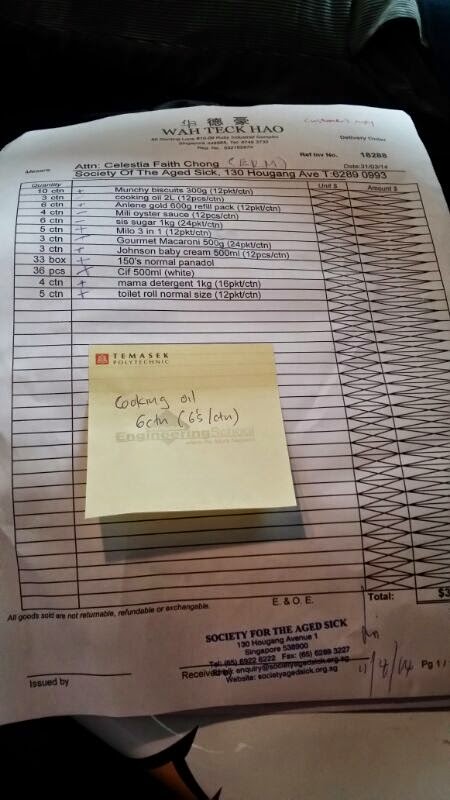 德豪
WAH TECK HAO
Customer's copy
Delivery Order
Ref Inv No. 18288
Date:31/03/14
Attn: Celestia Faith Chong
Society Of The Aged Sick, 130 Hougang Ave T 6289 0993
Quantity Unit $ Amount $
10 ctn Munchy biscuits 300g (12pkt/ctn)
3 ctn cooking oil 2L (12pcs/ctn)
6 ctn Anlene gold 600g refill pack (12pkt/ctn)
4 ctn Mili oyster sauce (12pcs/ctn)
6 ctn sis sugar 1kg (24pkt/ctn)
5 ctn Milo 3 in 1 (12pkt/ctn)
3 ctn Gourmet Macaroni 500g (24pkt/ctn)
3 ctn Johnson baby cream 500ml (12pcs/ctn)
33 box 150's normal panadol
36 pcs Cif 500ml (white)
4 ctn mama detergent 1kg (16pkt/ctn)
5 ctn toilet roll normal size (12pkt/ctn)
TEMASEK
POLYTECHNIC
Cooking oil
6ctn (6's/ctn)
Engineering School
E. & O. E. Total:
All goods sold are not returnable, refundable or exchangable.
SOCIETY FOR THE AGED SICK
130 Hougang Avenue 1
Singapore 538900
Tel: (65) 6922 6222 Fax: (65) 6289 3227
enquiry@societyagedsick.org.sg
Website: societyagedsick.org.sg
Issued by
Received by
Pg 1 /